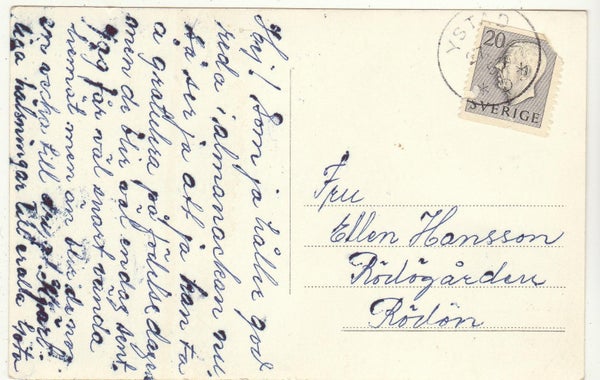 Hej! Som ja håller god
reda i almanackan nu,
så ser ja att ja kan ta
a gratulera på födelsedagen
men de blir väl endag sent.
jag får väl snart vända
hemåt men än blir de nog
en vecka till
liga hälsningar till er alla Göta
YSTAD
20
SVERIGE
Fru
Ellen Hansson
Rödögården
Rödön